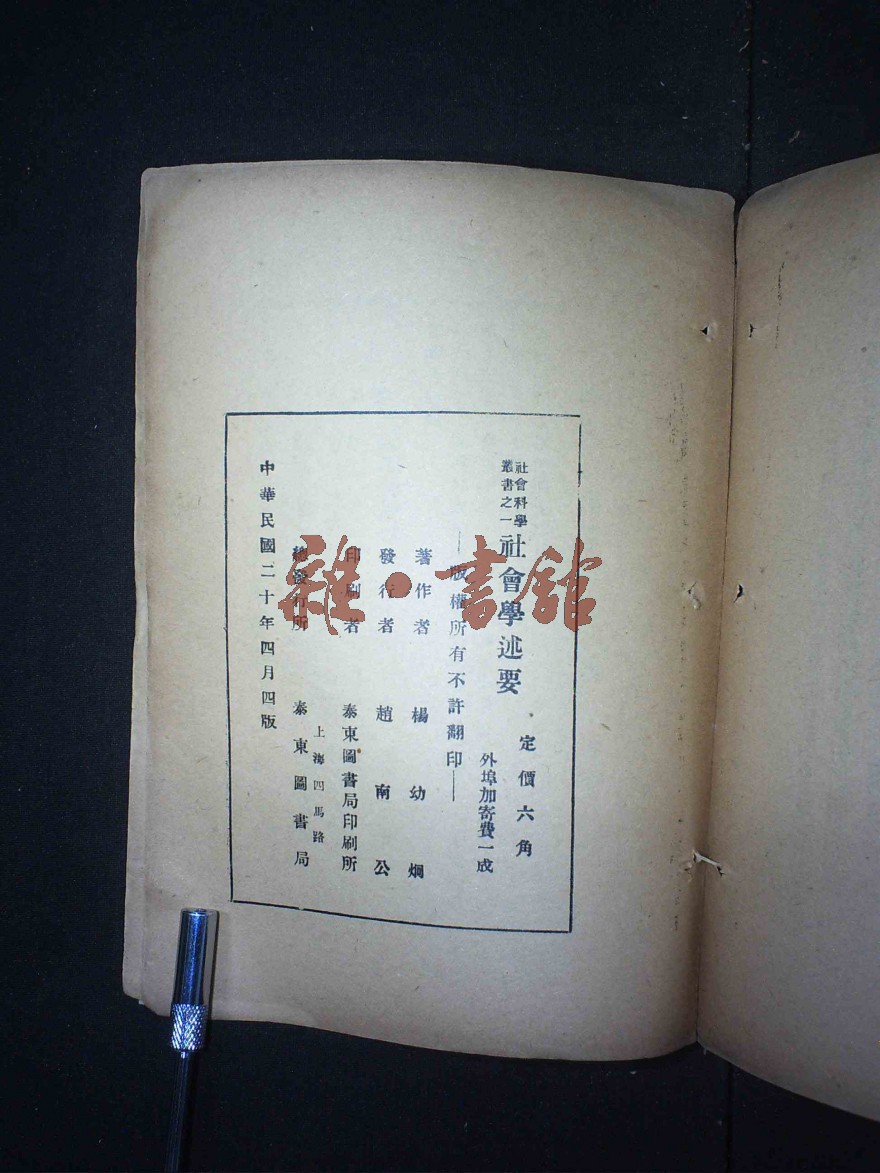 社會科學
叢書之一
社會學述要
定價六角
外埠加寄費一成
版權所有不許翻印
著作者 楊幼烱
發行者 趙南公
印刷者 泰東圖書局印刷所
上海四馬路
總發行所 泰東圖書局
中華民國二十年四月四版
雜·書館